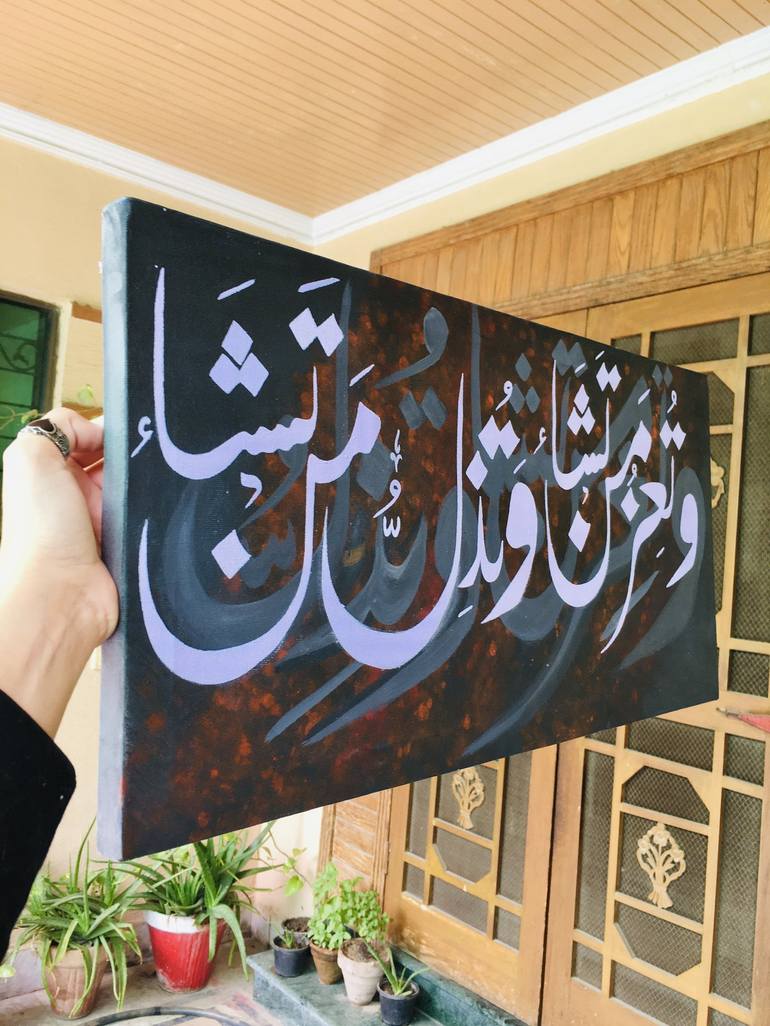 وَتُعِزُّ مَنْ تَشَاءُ وَتُذِلُّ مَنْ تَشَاءُ